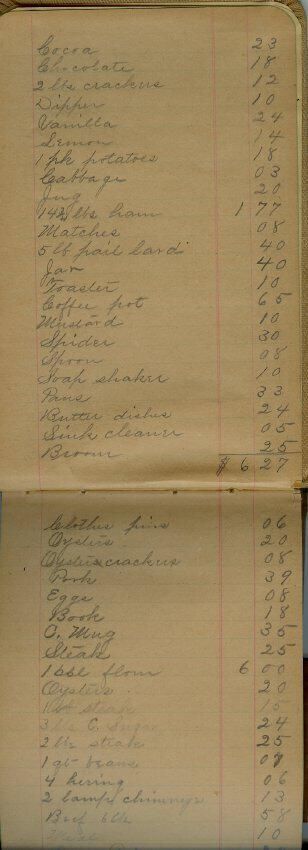 Cocoa 23
Chocolate 18
2 lbs crackers 12
Dipper 10
Vanilla 24
Lemon 14
1 pk potatoes 18
Cabbage 03
Jug 20
14½ lbs ham 1 77
Matches 08
5 lb pail lard 40
Jar 40
Toaster 10
Coffee pot 65
Mustard 10
Spider 30
Spoon 08
Soap shaker 10
Pans 33
Butter dishes 24
Sink cleaner 05
Broom 25
$ 6 27
Clothes pins 06
Oysters 20
Oyster crackers 08
Pork 39
Eggs 08
Book 18
C. Mug 35
Steak 25
1 bbl flour 6 00
Oysters 20
steak 15
3 lbs C. Sugar 24
2 lbs steak 25
1 qt beans 07
4 hering 06
2 lamp chimneys 13
Beef 58
Meat 10